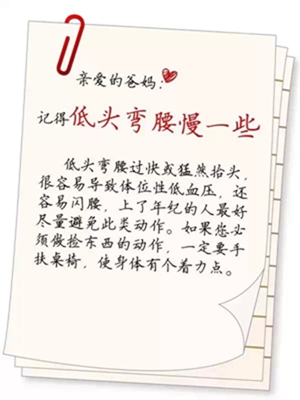 亲爱的爸妈:
记得低头弯腰慢一些
低头弯腰过快或猛然抬头,
很容易导致体位性低血压，还
容易闪腰，上了年纪的人最好
尽量避免此类动作。如果您必
须做捡东西的动作，一定要手
扶桌椅，使身体有个着力点。